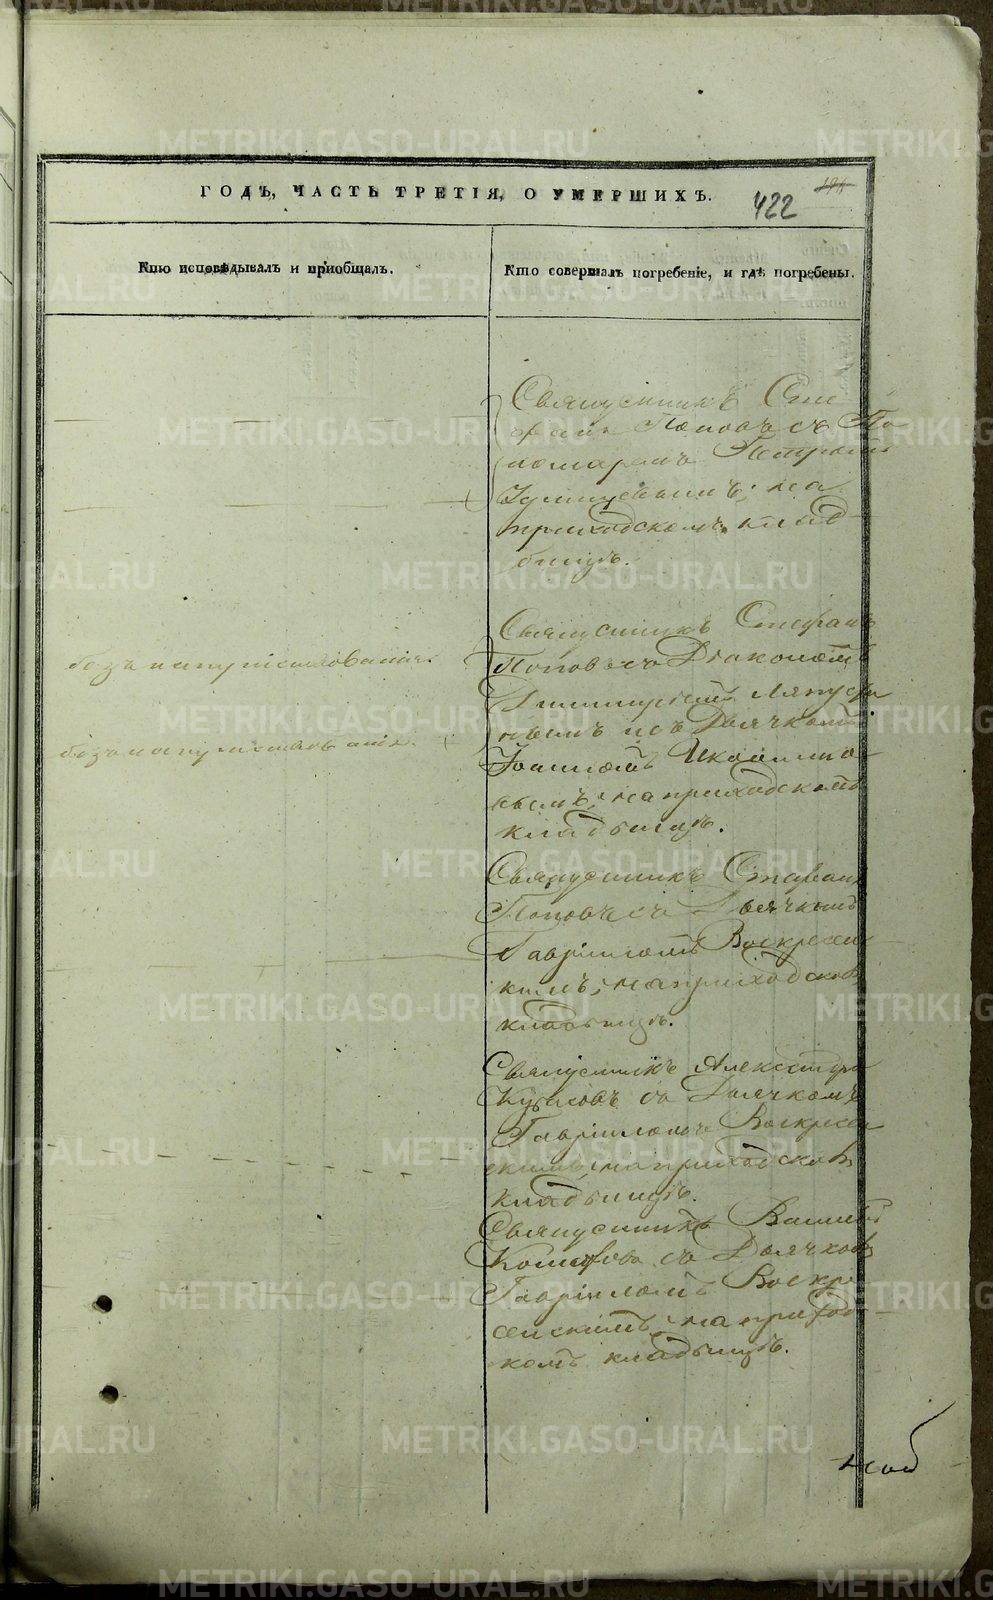 ГОДЪ, ЧАСТЬ ТРЕТІЯ, О УМЕРШИХЪ.
422
Кто исповѣдывалъ и пріобщалъ.
Кто совершалъ погребеніе, и гдѣ погребены.
Священникъ Сте
фанъ Поповъ съ По
номаремъ Петромъ
на
приходскомъ клад
бищѣ.
Священникъ Стефанъ
Поповъ съ Діакономъ
Димитріемъ Ляпусти
нымъ и съ Дьячкомъ
Іоанномъ
вымъ, на приходскомъ
кладбищѣ.
безъ напутствованія.
безъ напутствованія.
Священникъ Стефанъ
Поповъ съ Дьячкомъ
Гавріиломъ Воскресен
кимъ, на приходском
кладбищѣ.
Священникъ Александръ
съ Дьячкомъ
Гавріиломъ Воскресен
скимъ, на приходском
кладбищѣ.
Священникъ
съ Дьячком
Гавріиломъ Воскре
сенскимъ, на приход
комъ кладбищѣ.
METRIKI.GASO-URAL.RU